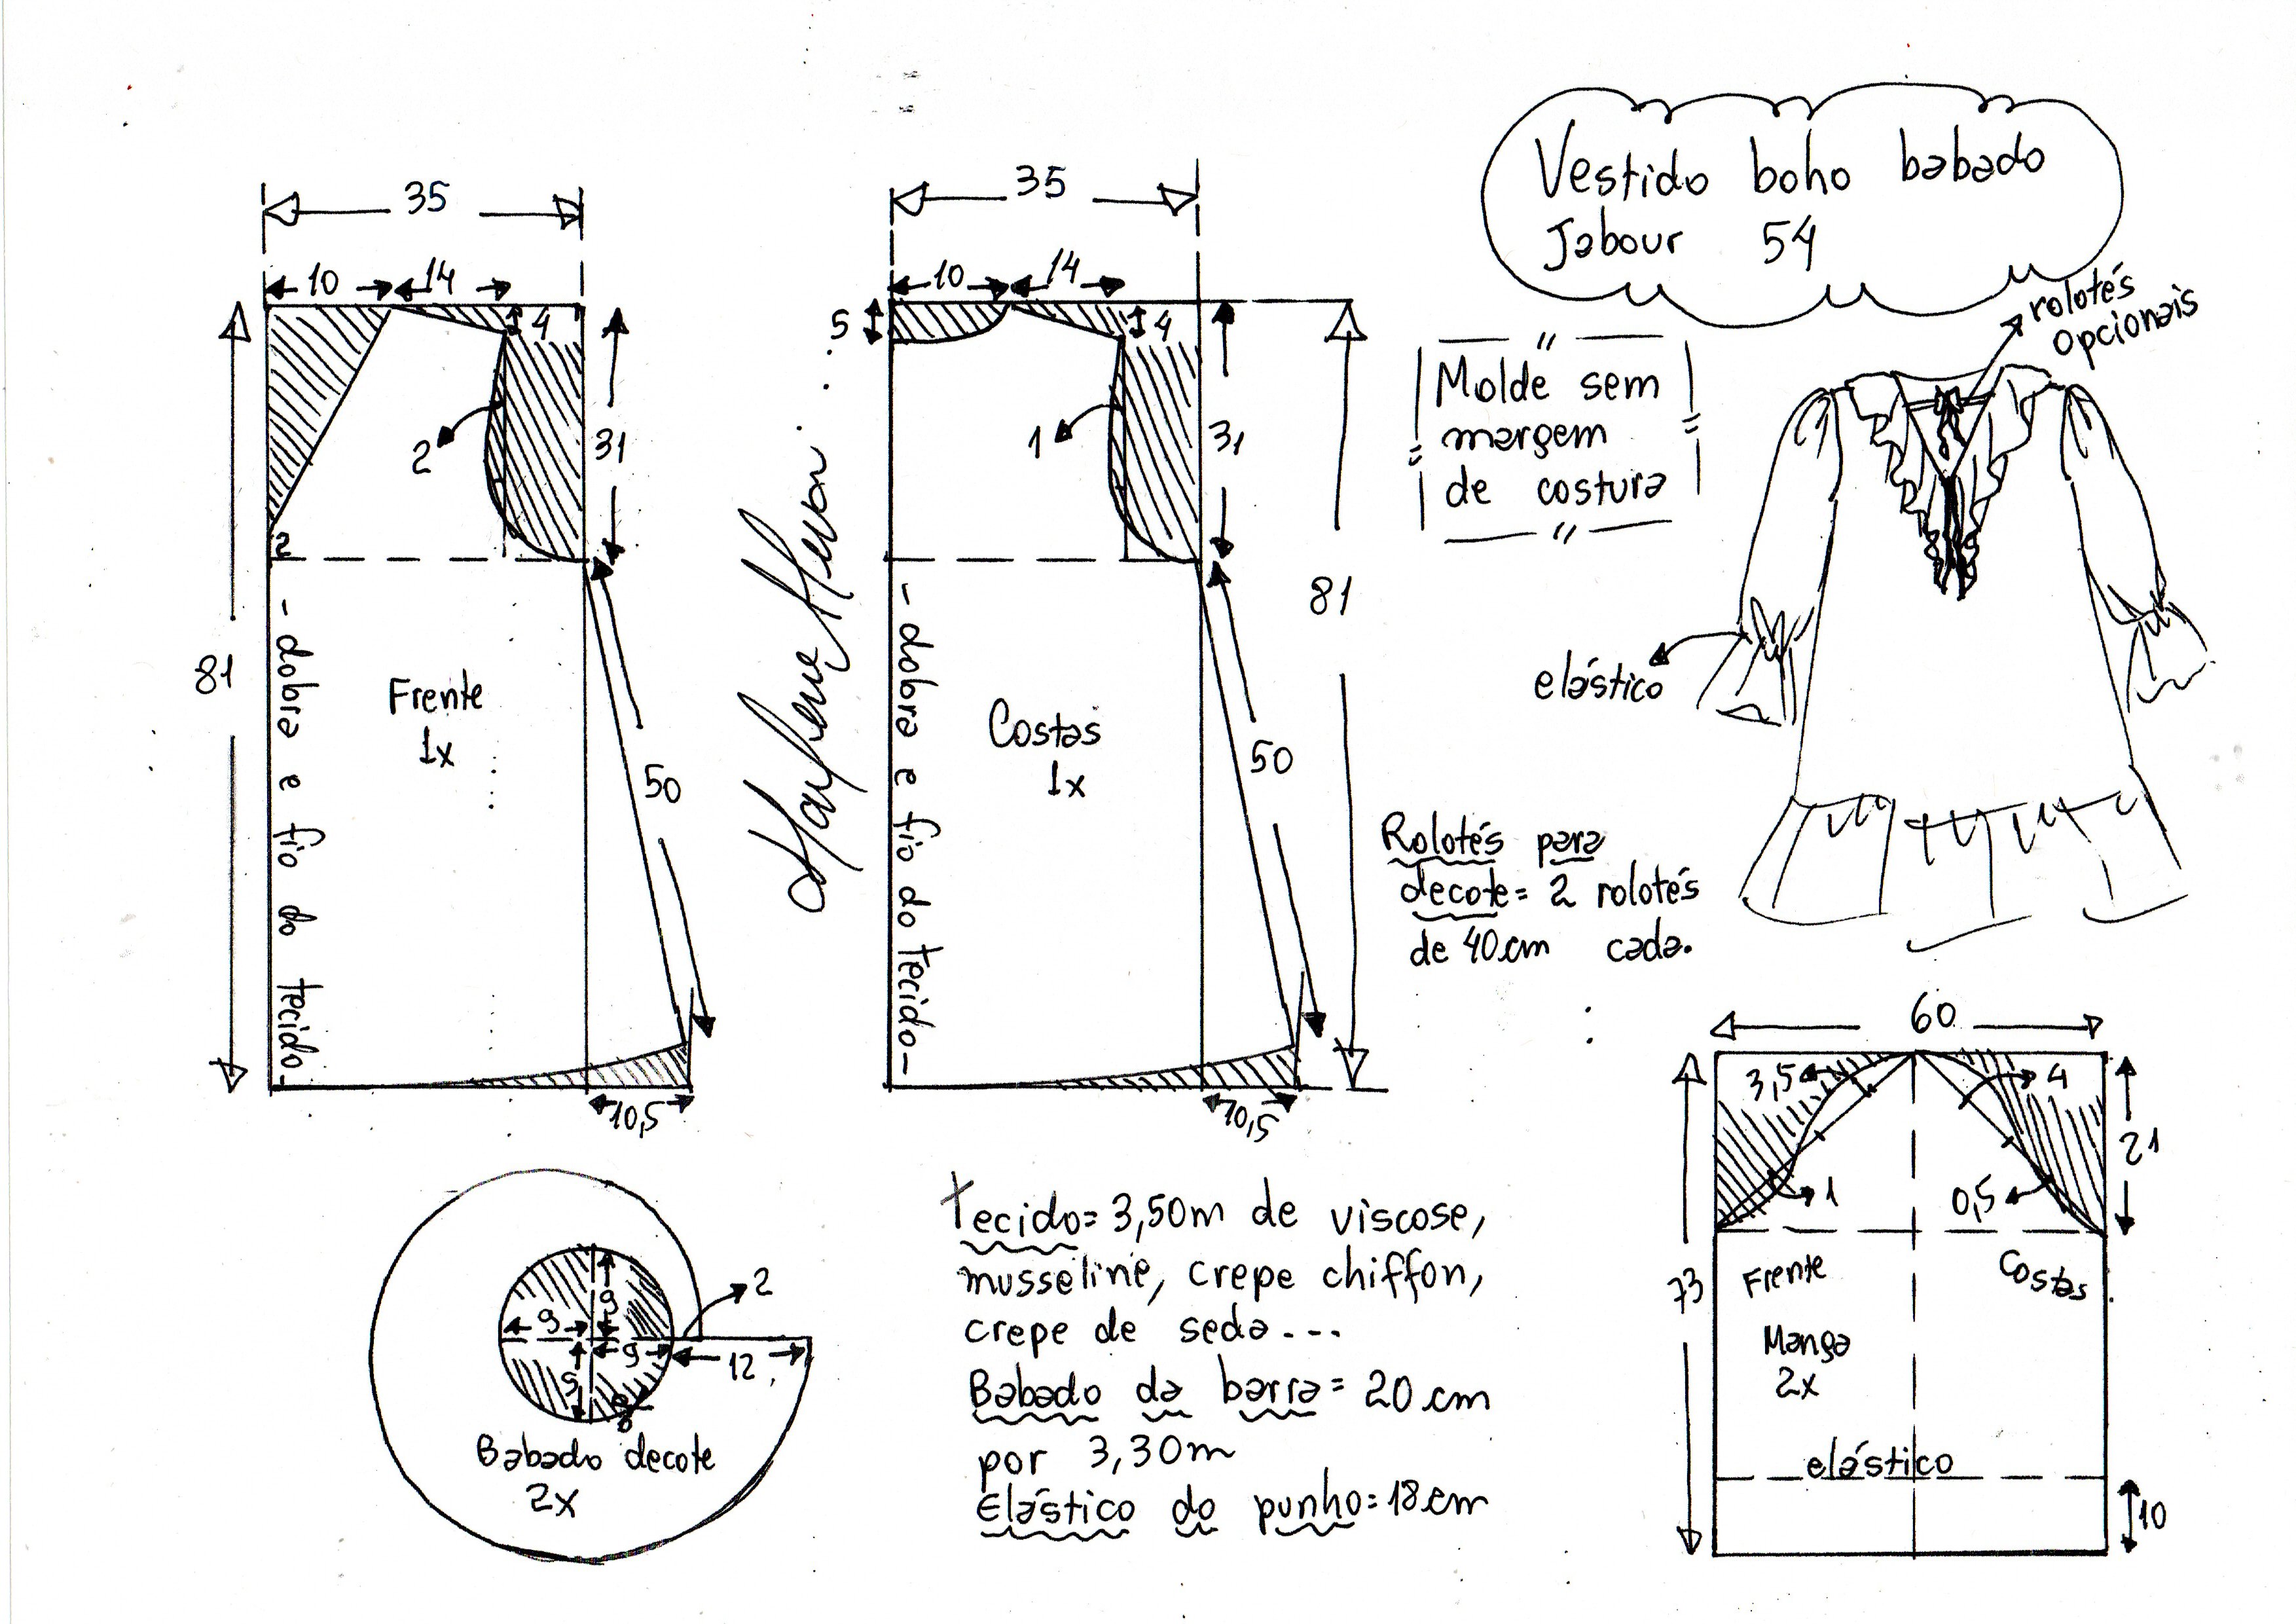 Vestido boho babado
Jabour 54
rolotés
opcionais
Molde sem
margem
de costura
elástico
Rolotés para
decote= 2 rolotés
de 40cm cada.
35
10 14
4
2
31
2
81
50
10,5
Frente
1x
- dobra e fio do tecido -
Marlene Mukai
35
10 14
5
4
1
31
81
50
10,5
Costas
1x
- dobra e fio do tecido -
2
9
9
9
9
12
Babado decote
2x
Tecido= 3,50m de viscose,
musseline, crepe chiffon,
crepe de seda...
Babado da barra= 20cm
por 3,30m
Elástico do punho=18cm
60
3,5
4
21
1
0,5
73
Frente
Costas
Manga
2x
elástico
10